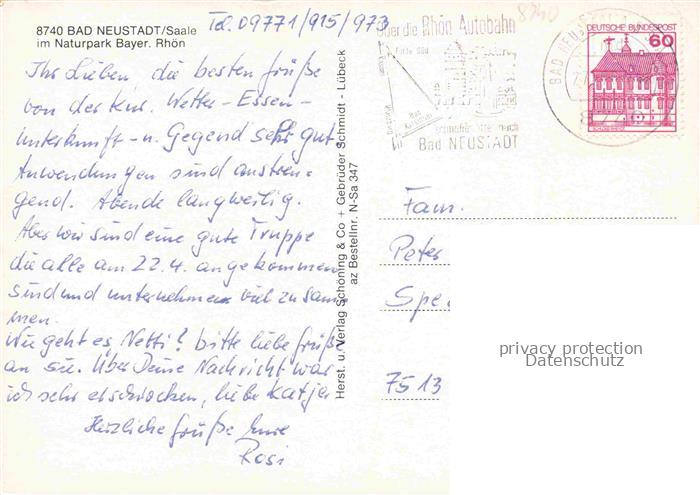 8740 BAD NEUSTADT/Saale
im Naturpark Bayer. Rhön
Tel. 09771/915/973
Ihr Lieben die besten Grüße
von der Kur. Wetter - Essen -
Unterkunft - u. Gegend sehr gut
Anwendungen sind anstren-
gend. Abende langweilig.
Aber wir sind eine gute Truppe
die alle am 22.4. angekommen
sind und unternehmen viel zusam
men.
Wie geht es Netti? bitte liebe Grüße
an sie. Über Deine Nachricht war
ich sehr erschrocken, liebe Katja
Herzliche Grüße Eure
Rosi
Herst. u. Verlag Schöning & Co + Gebrüder Schmidt - Lübeck
az Bestellnr. N-Sa 347
8740
über die Rhön Autobahn
nach
Bad NEUSTADT
BAD NEUSTADT
DEUTSCHE BUNDESPOST
60
Fam.
Peter
Spe
7513
privacy protection
Datenschutz